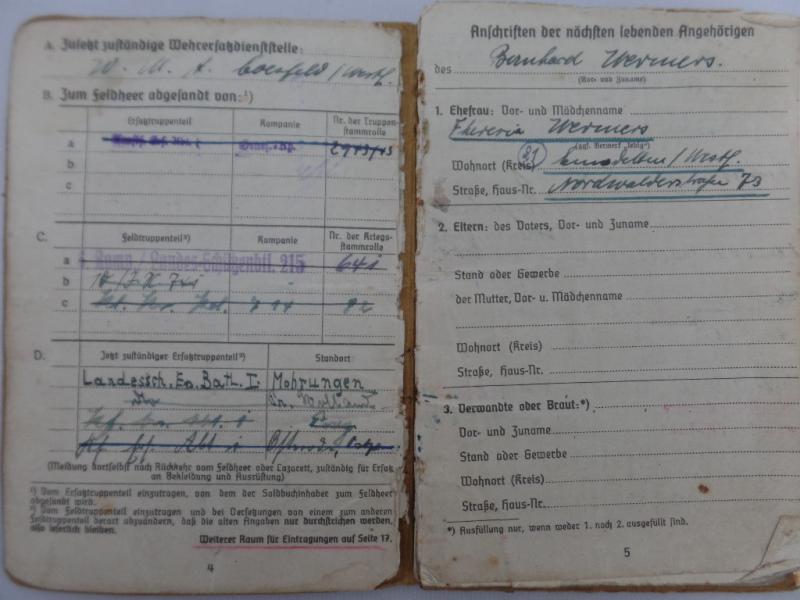 A. Zuletzt zuständige Wehrersatzdienststelle:
W. M. A. Coesfeld/Westf.
B. Zum Feldheer abgesandt von:¹)
Ersatztruppenteil Kompanie Nr. der Truppen-
stammrolle
a 2943/43
b
c
C. Feldtruppenteil²) Kompanie Nr. der Kriegs-
stammrolle
a Komp./Landes-Schützenbtl. 215 641
b
c
D. Jetzt zuständiger Ersatztruppenteil²) Standort
Landessch. Ers. Batl. I Mohrungen
(Meldung dortselbst nach Rückkehr vom Feldheer oder Lazarett, zuständig für Ersatz
an Bekleidung und Ausrüstung)
¹) Vom Ersatztruppenteil einzutragen, von dem der Soldbuchinhaber zum Feldheer
abgesandt wird.
²) Vom Feldtruppenteil einzutragen und bei Versetzungen von einem zum anderen
Feldtruppenteil derart abzuändern, daß die alten Angaben nur durchstrichen werden,
also leserlich bleiben.
Weiterer Raum für Eintragungen auf Seite 17.
4
Anschriften der nächsten lebenden Angehörigen
des Bernhard Wermers.
(Vor- und Zuname)
1. Ehefrau: Vor- und Mädchenname
Wermers
(ggf. Vermerk „ledig")
Wohnort (Kreis) (21) Emsdetten/Westf.
Straße, Haus-Nr. Nordwalderstraße 73
2. Eltern: des Vaters, Vor- und Zuname
Stand oder Gewerbe
der Mutter, Vor- u. Mädchenname
Wohnort (Kreis)
Straße, Haus-Nr.
3. Verwandte oder Braut:*)
Vor- und Zuname
Stand oder Gewerbe
Wohnort (Kreis)
Straße, Haus-Nr.
*) Ausfüllung nur, wenn weder 1. noch 2. ausgefüllt sind.
5